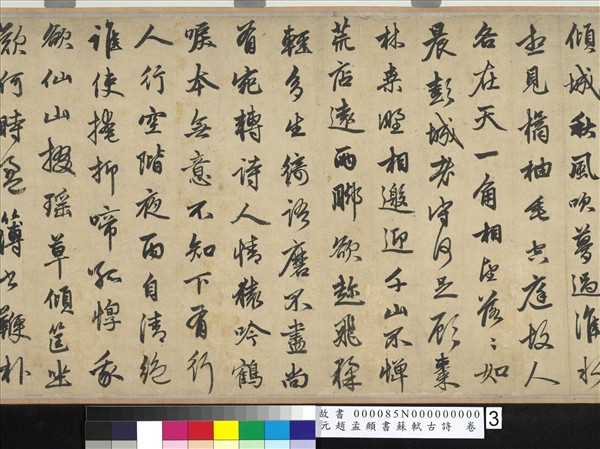 傾城秋風吹夢過淮水
想見橘柚垂空庭故人
各在天一角相望落〻如
晨彭城老守何足顧棗
林桑野相邀迎千山不憚
荒店遠兩腳欲趁飛猱
輕多生綺語磨不盡尚
有宛轉詩人情猿吟鶴
唳本無意不知下有行
人行空階夜雨自清絕
誰使掩抑啼孤惸我
欲仙山掇瑤草傾筐坐
歎何時盈簿書鞭朴
故書 000085N000000000 3
元趙孟頫書蘇軾古詩 卷